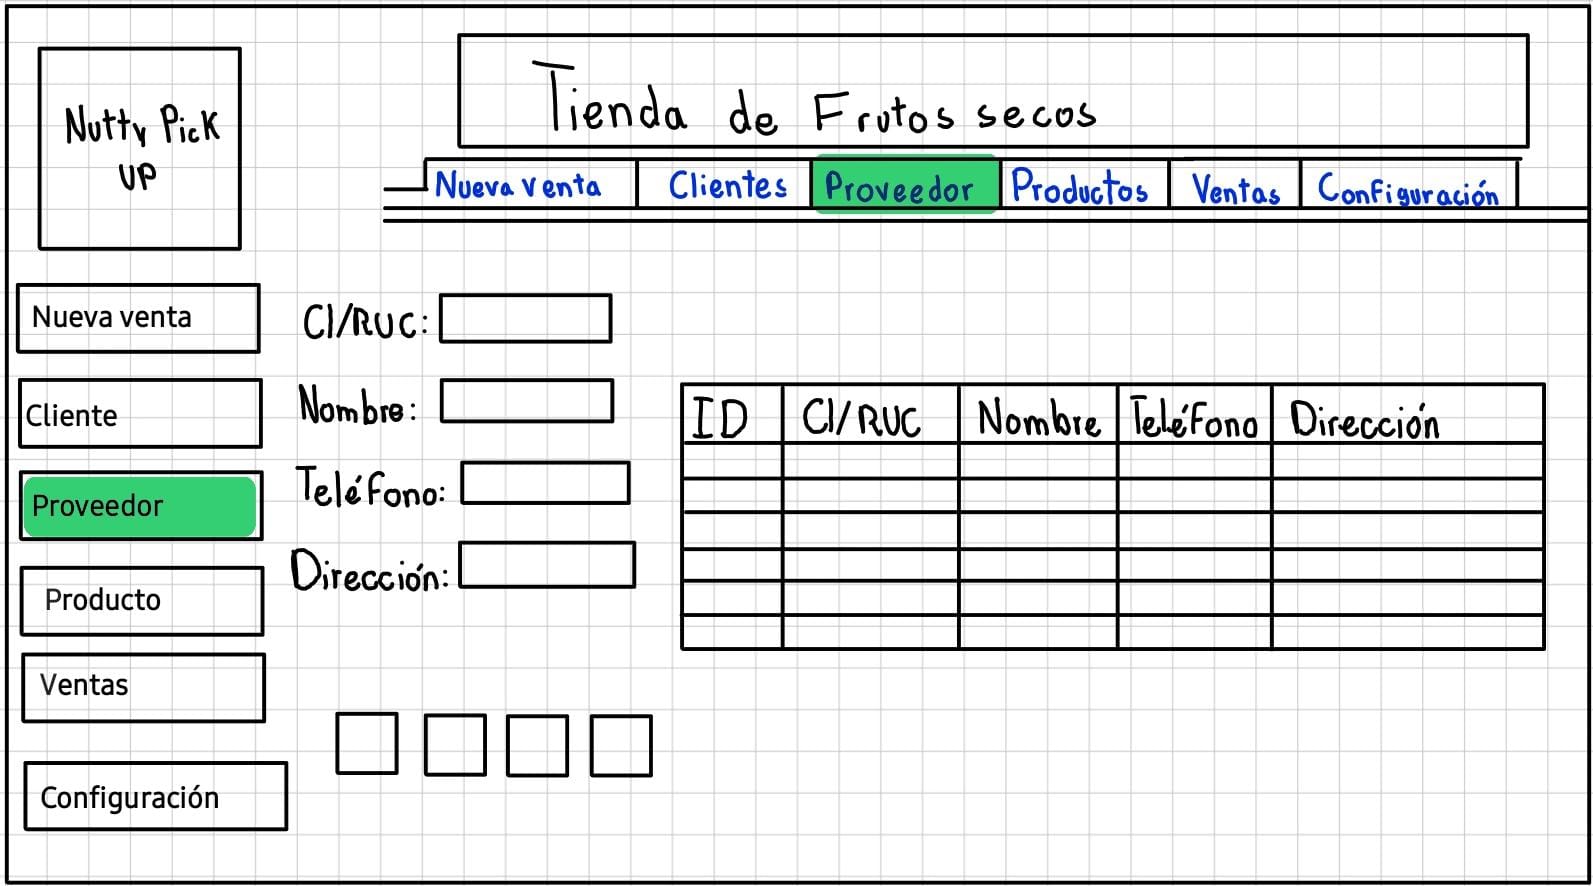 Nutty Pick
UP
Tienda de Frutos secos
Nueva venta Clientes Proveedor Productos Ventas Configuración
Nueva venta
Cliente
Proveedor
Producto
Ventas
Configuración
CI/RUC:
Nombre:
Teléfono:
Dirección:
ID CI/RUC Nombre Teléfono Dirección